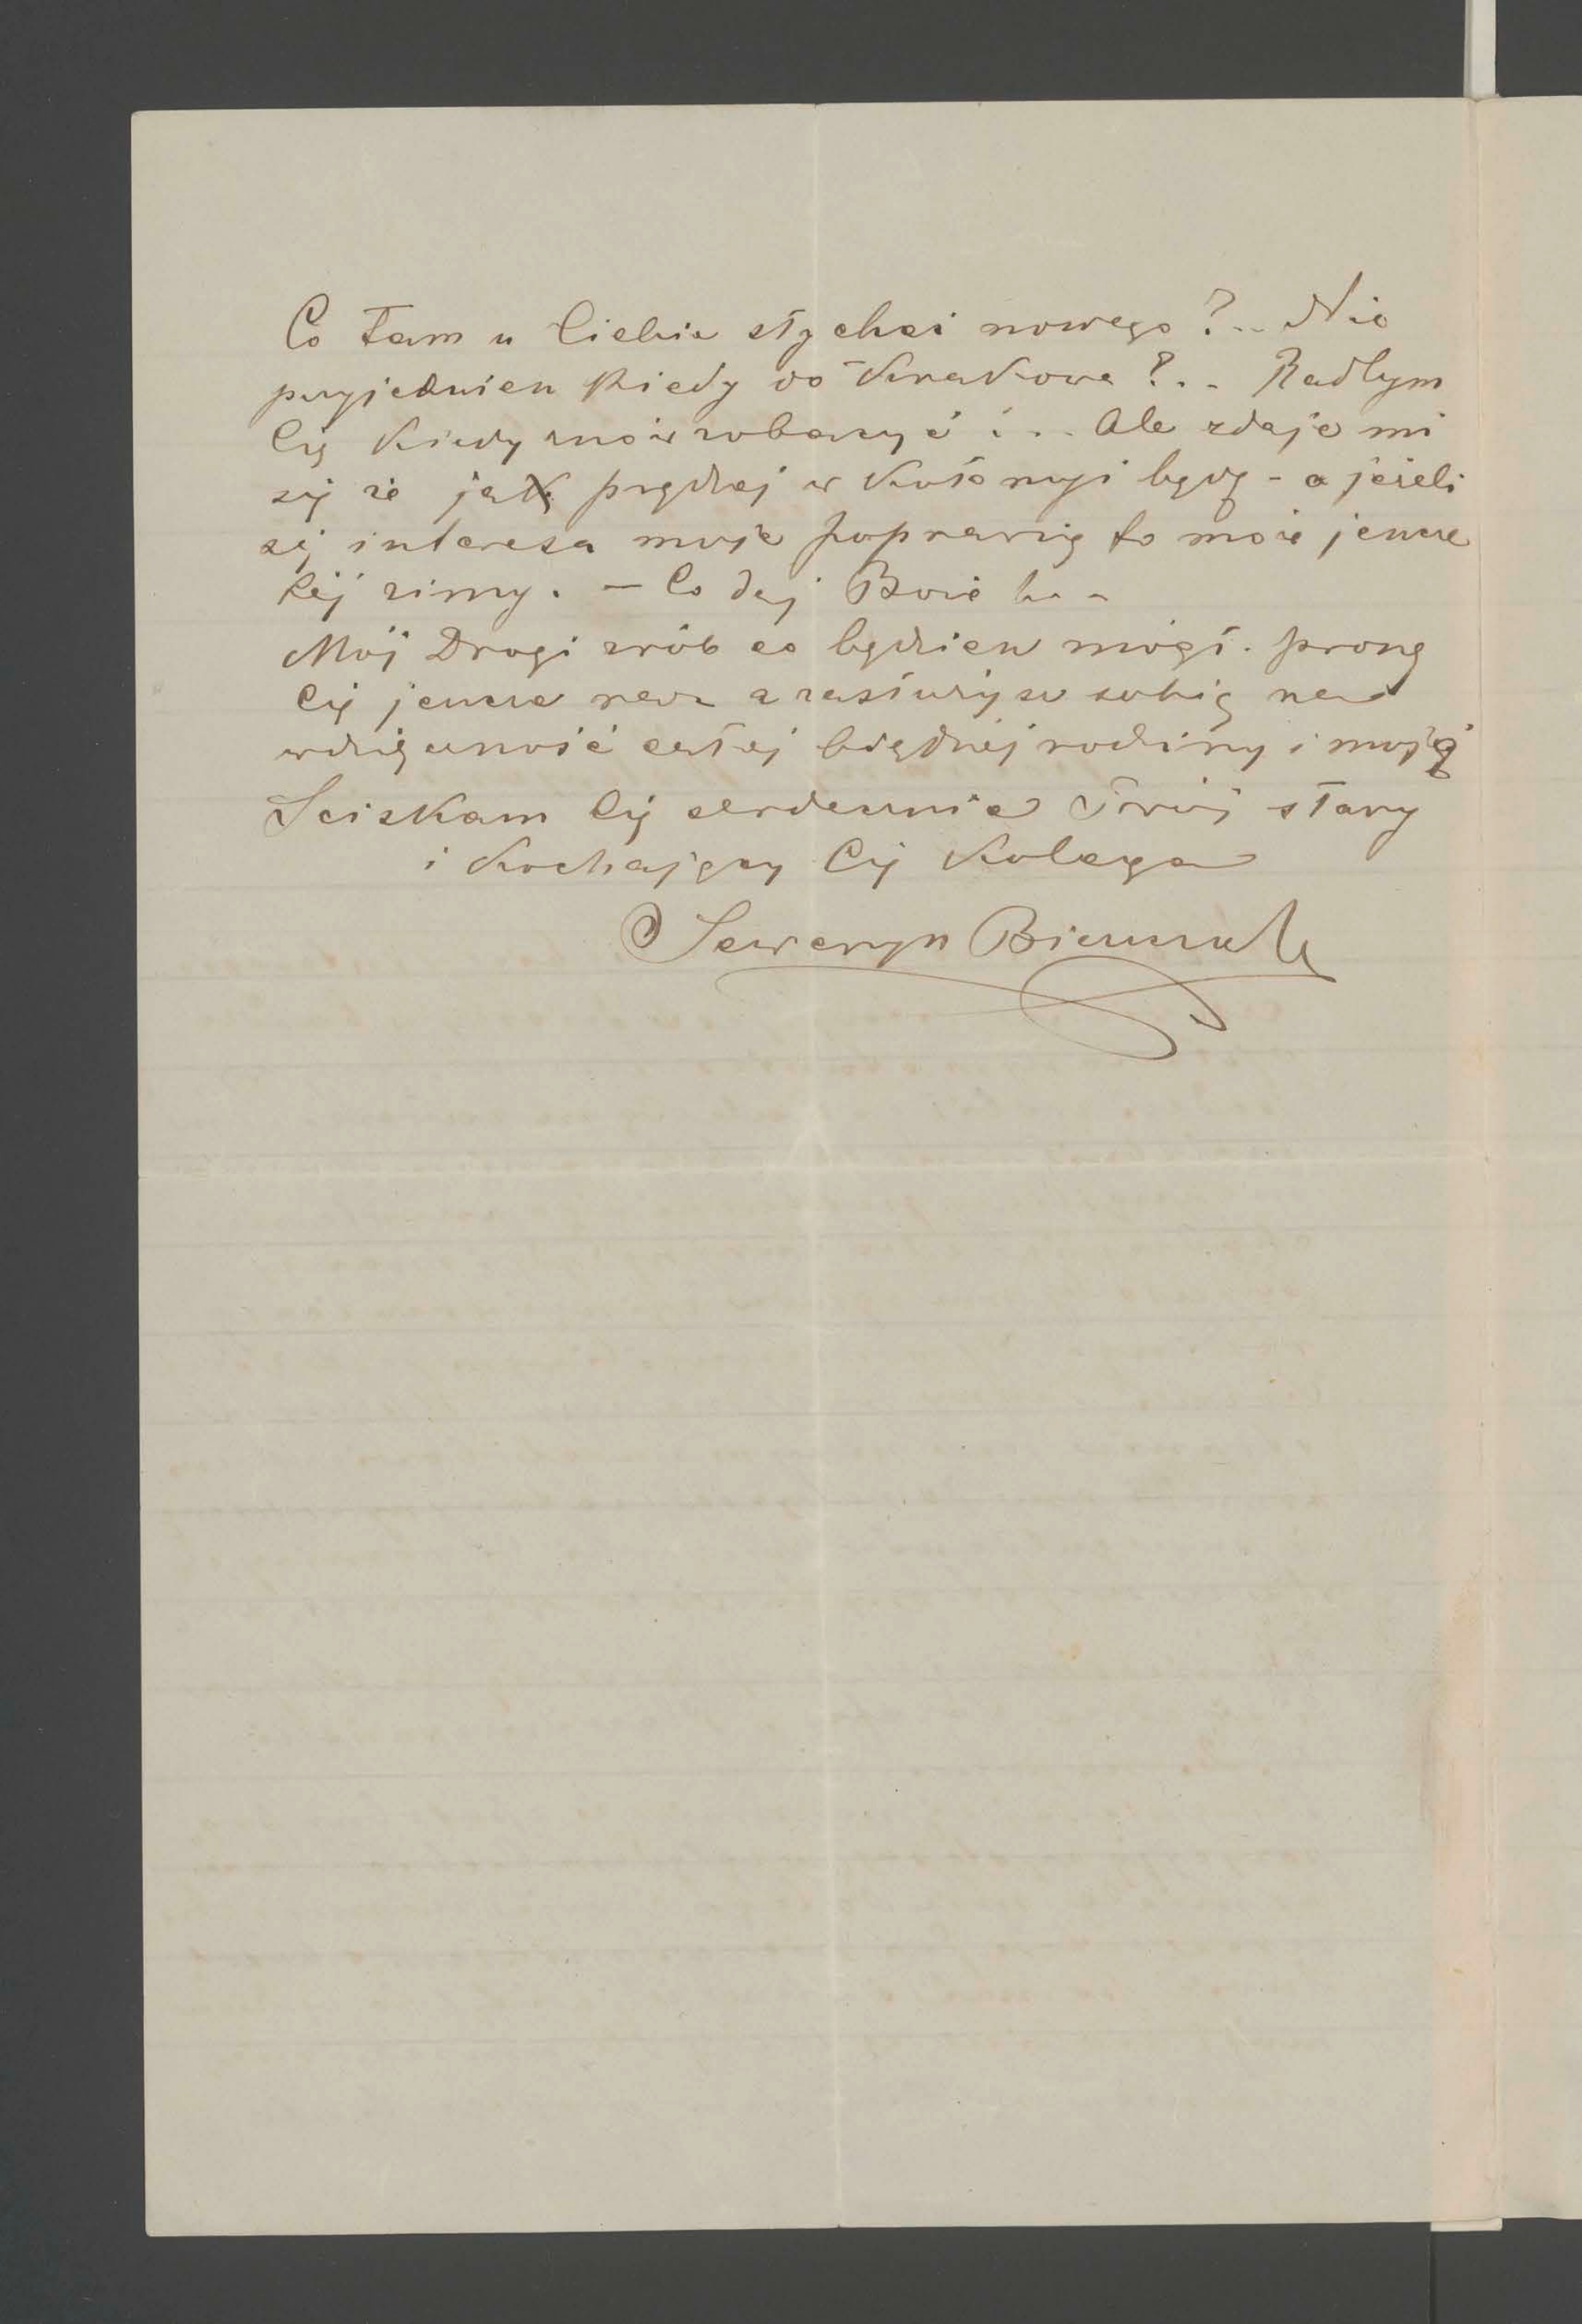 Co tam u Ciebie słychać nowego?.. Nie
przyjedziesz kiedy do Krakowa?.. Radbym
Cię kiedy znów zobaczyć i... Ale zdaje mi
się że jak prędzej w Kołomyi będę - a jeżeli
się interesa moje poprawią to może jeszcze
tej zimy. — Co daj Boże
Mój Drogi zrób co będziesz mógł. proszę
Cię jeszcze raz a zasłużysz sobie na
wdzięczność całej biednej rodziny i moją
Sciskam Cię serdecznie Twój stary
i Kochający Cię Kolega
Seweryn Bieszczad